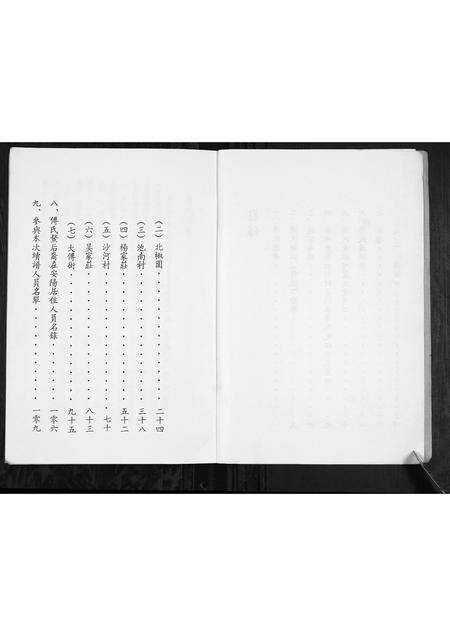 （二）北椒園・・・・・・・・・・・・二十四
（三）池南村・・・・・・・・・・・・三十八
（四）楊家莊・・・・・・・・・・・・五十二
（五）沙河村・・・・・・・・・・・・七十
（六）吴家莊・・・・・・・・・・・・八十三
（七）大傅街・・・・・・・・・・・・九十五
八、傅氏螯后裔在安陽居住人員名錄・・・・・一零六
九、參與本次續譜人員名單・・・・・・・・一零九